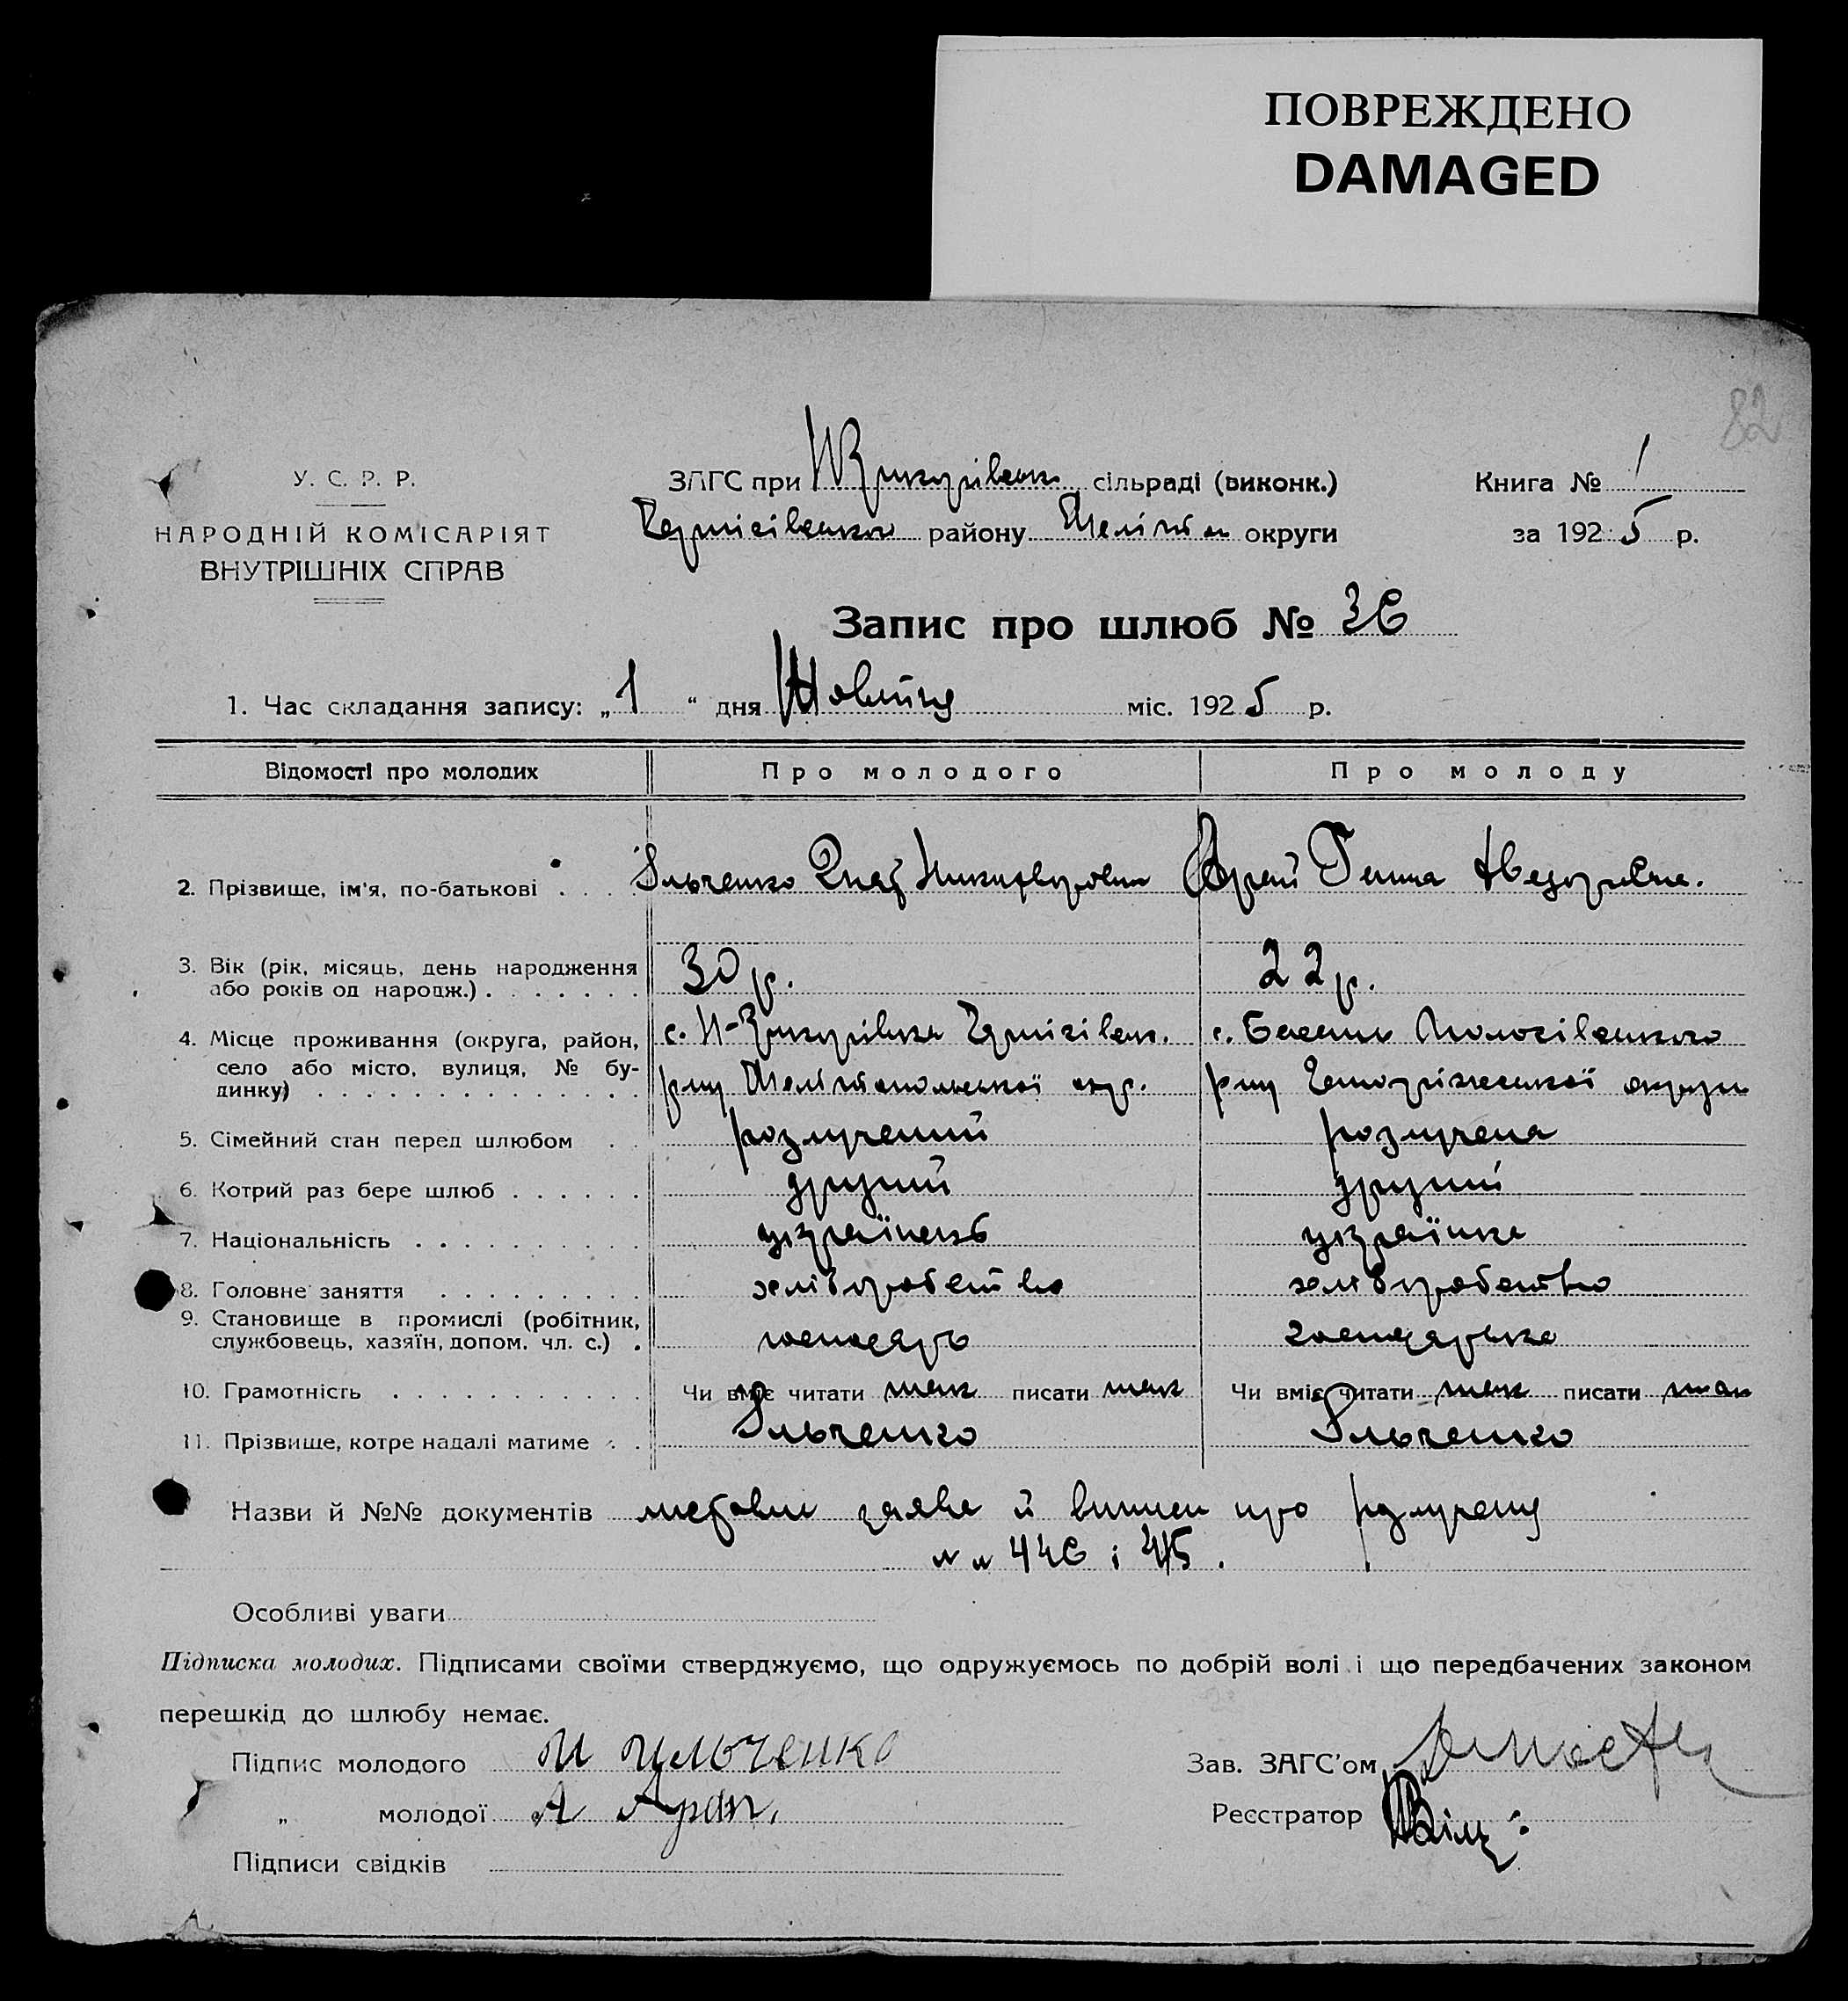 ПОВРЕЖДЕНО
DAMAGED
82
У. С. Р. Р.
НАРОДНІЙ КОМІСАРІЯТ
ВНУТРІШНІХ СПРАВ
ЗАГС при сільраді (виконк.)
Чернігівського району Меліт округи
Книга № 1
за 1925 р.
Запис про шлюб № 36
1. Час складання запису: „1“ дня Жовтня міс. 1925 р.
Відомості про молодих Про молодого Про молоду
2. Прізвище, ім'я, по-батькові . . . Ільченко Никифорович
3. Вік (рік, місяць, день народження
або років од народж.) . . . . . . . 30 р. 22 р.
4. Місце проживання (округа, район, с. Чернігівськ. с.
село або місто, вулиця, № бу- р-ну Мелітопольської окр. р-ну Запорізької округи
динку) . . . . . . . . . . . . . .
5. Сімейний стан перед шлюбом . . розлучений розлучена
6. Котрий раз бере шлюб . . . . . . другий другий
7. Національність . . . . . . . . . . українець українка
8. Головне заняття . . . . . . . . . хліборобство хліборобство
9. Становище в промислі (робітник,
службовець, хазяїн, допом. чл. с.) . господарь господарька
10. Грамотність . . . . . . . . . . . Чи вміє читати так писати так Чи вміє читати так писати так
11. Прізвище, котре надалі матиме . . Ільченко Ільченко
Назви й №№ документів заява й про розлучення
№№ 446 і 45.
Особливі уваги
Підписка молодих. Підписами своїми стверджуємо, що одружуємось по добрій волі і що передбачених законом
перешкід до шлюбу немає.
Підпис молодого И Ильченко
Зав. ЗАГС'ом
„ молодої А
Реєстратор
Підписи свідків